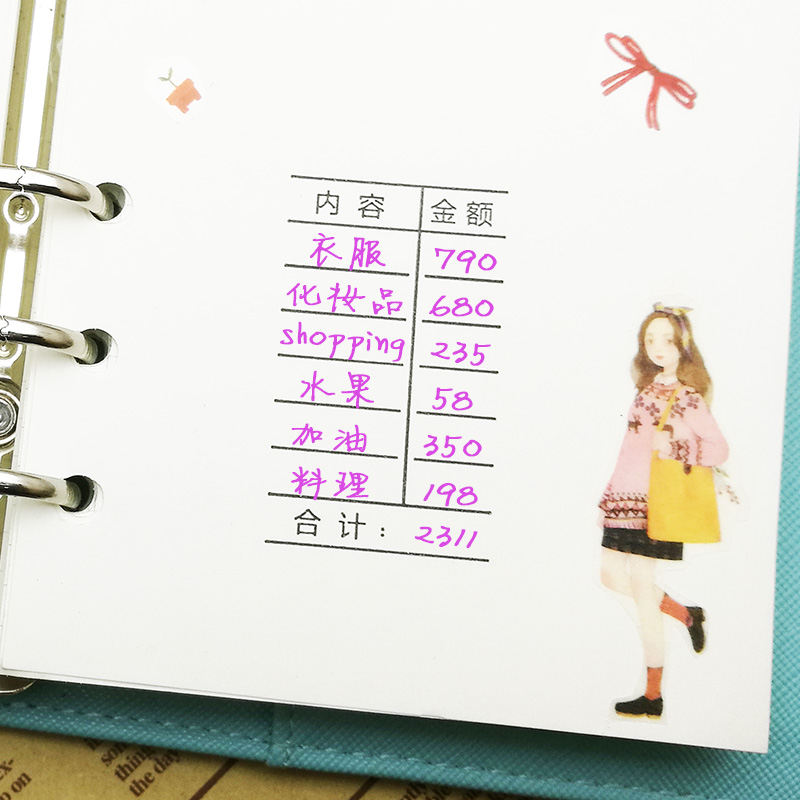 内容 金额
衣服 790
化妆品 680
shopping 235
水果 58
加油 350
料理 198
合计: 2311
ex-
p on
som
thing
the day